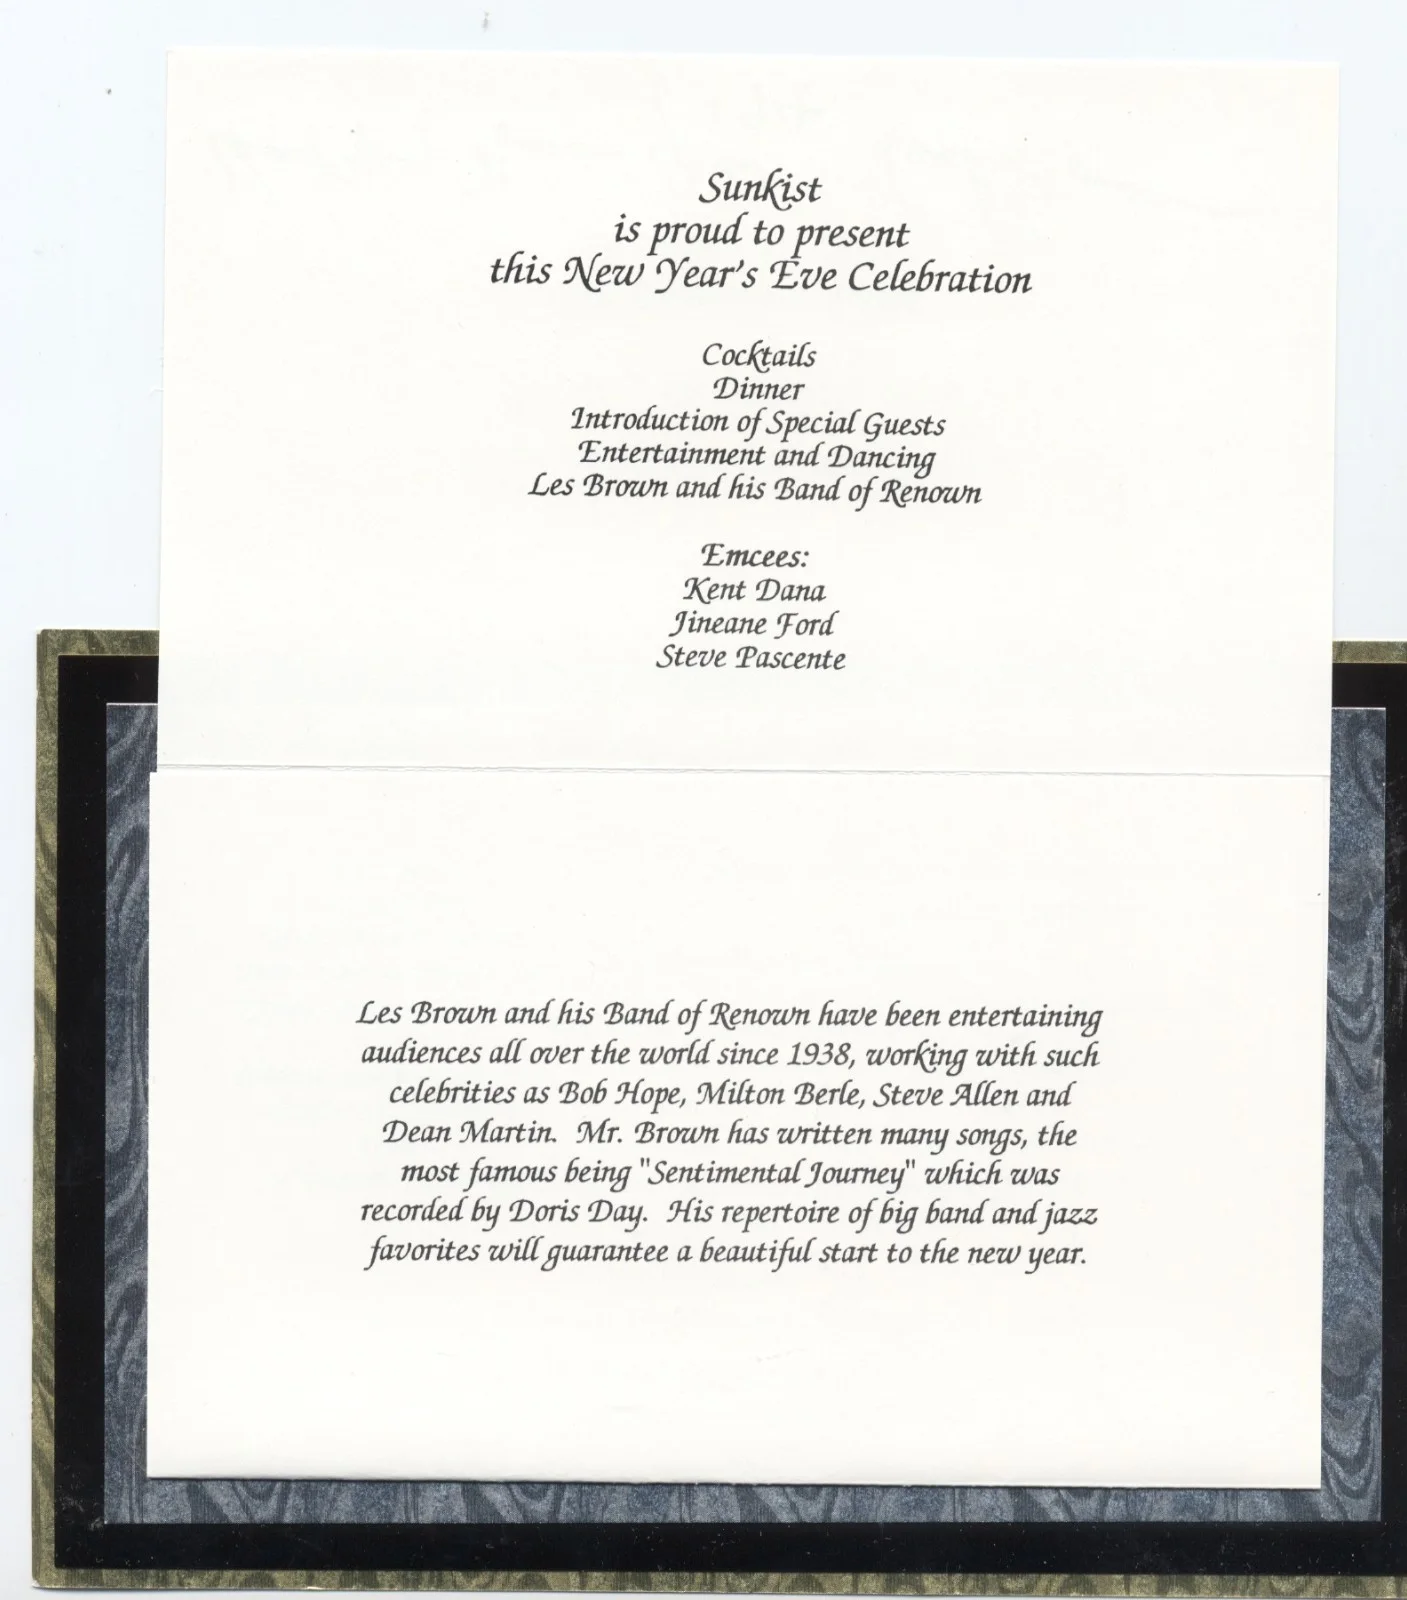 Sunkist
is proud to present
this New Year's Eve Celebration
Cocktails
Dinner
Introduction of Special Guests
Entertainment and Dancing
Les Brown and his Band of Renown
Emcees:
Kent Dana
Jineane Ford
Steve Pascente
Les Brown and his Band of Renown have been entertaining
audiences all over the world since 1938, working with such
celebrities as Bob Hope, Milton Berle, Steve Allen and
Dean Martin.  Mr. Brown has written many songs, the
most famous being "Sentimental Journey" which was
recorded by Doris Day.  His repertoire of big band and jazz
favorites will guarantee a beautiful start to the new year.